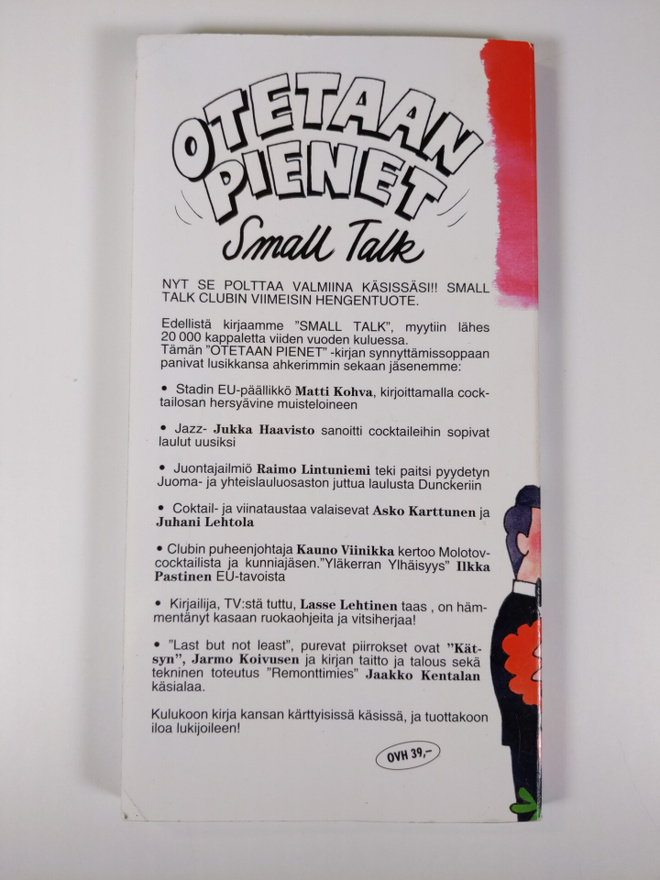 OTETAAN
PIENET
Small Talk
NYT SE POLTTAA VALMIINA KÄSISSÄSI!! SMALL
TALK CLUBIN VIIMEISIN HENGENTUOTE.
Edellistä kirjaamme "SMALL TALK", myytiin lähes
20 000 kappaletta viiden vuoden kuluessa.
Tämän "OTETAAN PIENET" -kirjan synnyttämissoppaan
panivat lusikkansa ahkerimmin sekaan jäsenemme:
• Stadin EU-päällikkö Matti Kohva, kirjoittamalla cock-
tailosan hersyävine muisteloineen
• Jazz- Jukka Haavisto sanoitti cocktaileihin sopivat
laulut uusiksi
• Juontajailmiö Raimo Lintuniemi teki paitsi pyydetyn
Juoma- ja yhteislauluosaston juttua laulusta Dunckeriin
• Coktail- ja viinataustaa valaisevat Asko Karttunen ja
Juhani Lehtola
• Clubin puheenjohtaja Kauno Viinikka kertoo Molotov-
cocktailista ja kunniajäsen."Yläkerran Ylhäisyys" Ilkka
Pastinen EU-tavoista
• Kirjailija, TV:stä tuttu, Lasse Lehtinen taas , on häm-
mentänyt kasaan ruokaohjeita ja vitsiherjaa!
• "Last but not least", purevat piirrokset ovat "Kät-
syn", Jarmo Koivusen ja kirjan taitto ja talous sekä
tekninen toteutus "Remonttimies" Jaakko Kentalan
käsialaa.
Kulukoon kirja kansan kärttyisissä käsissä, ja tuottakoon
iloa lukijoileen!
OVH 39,–